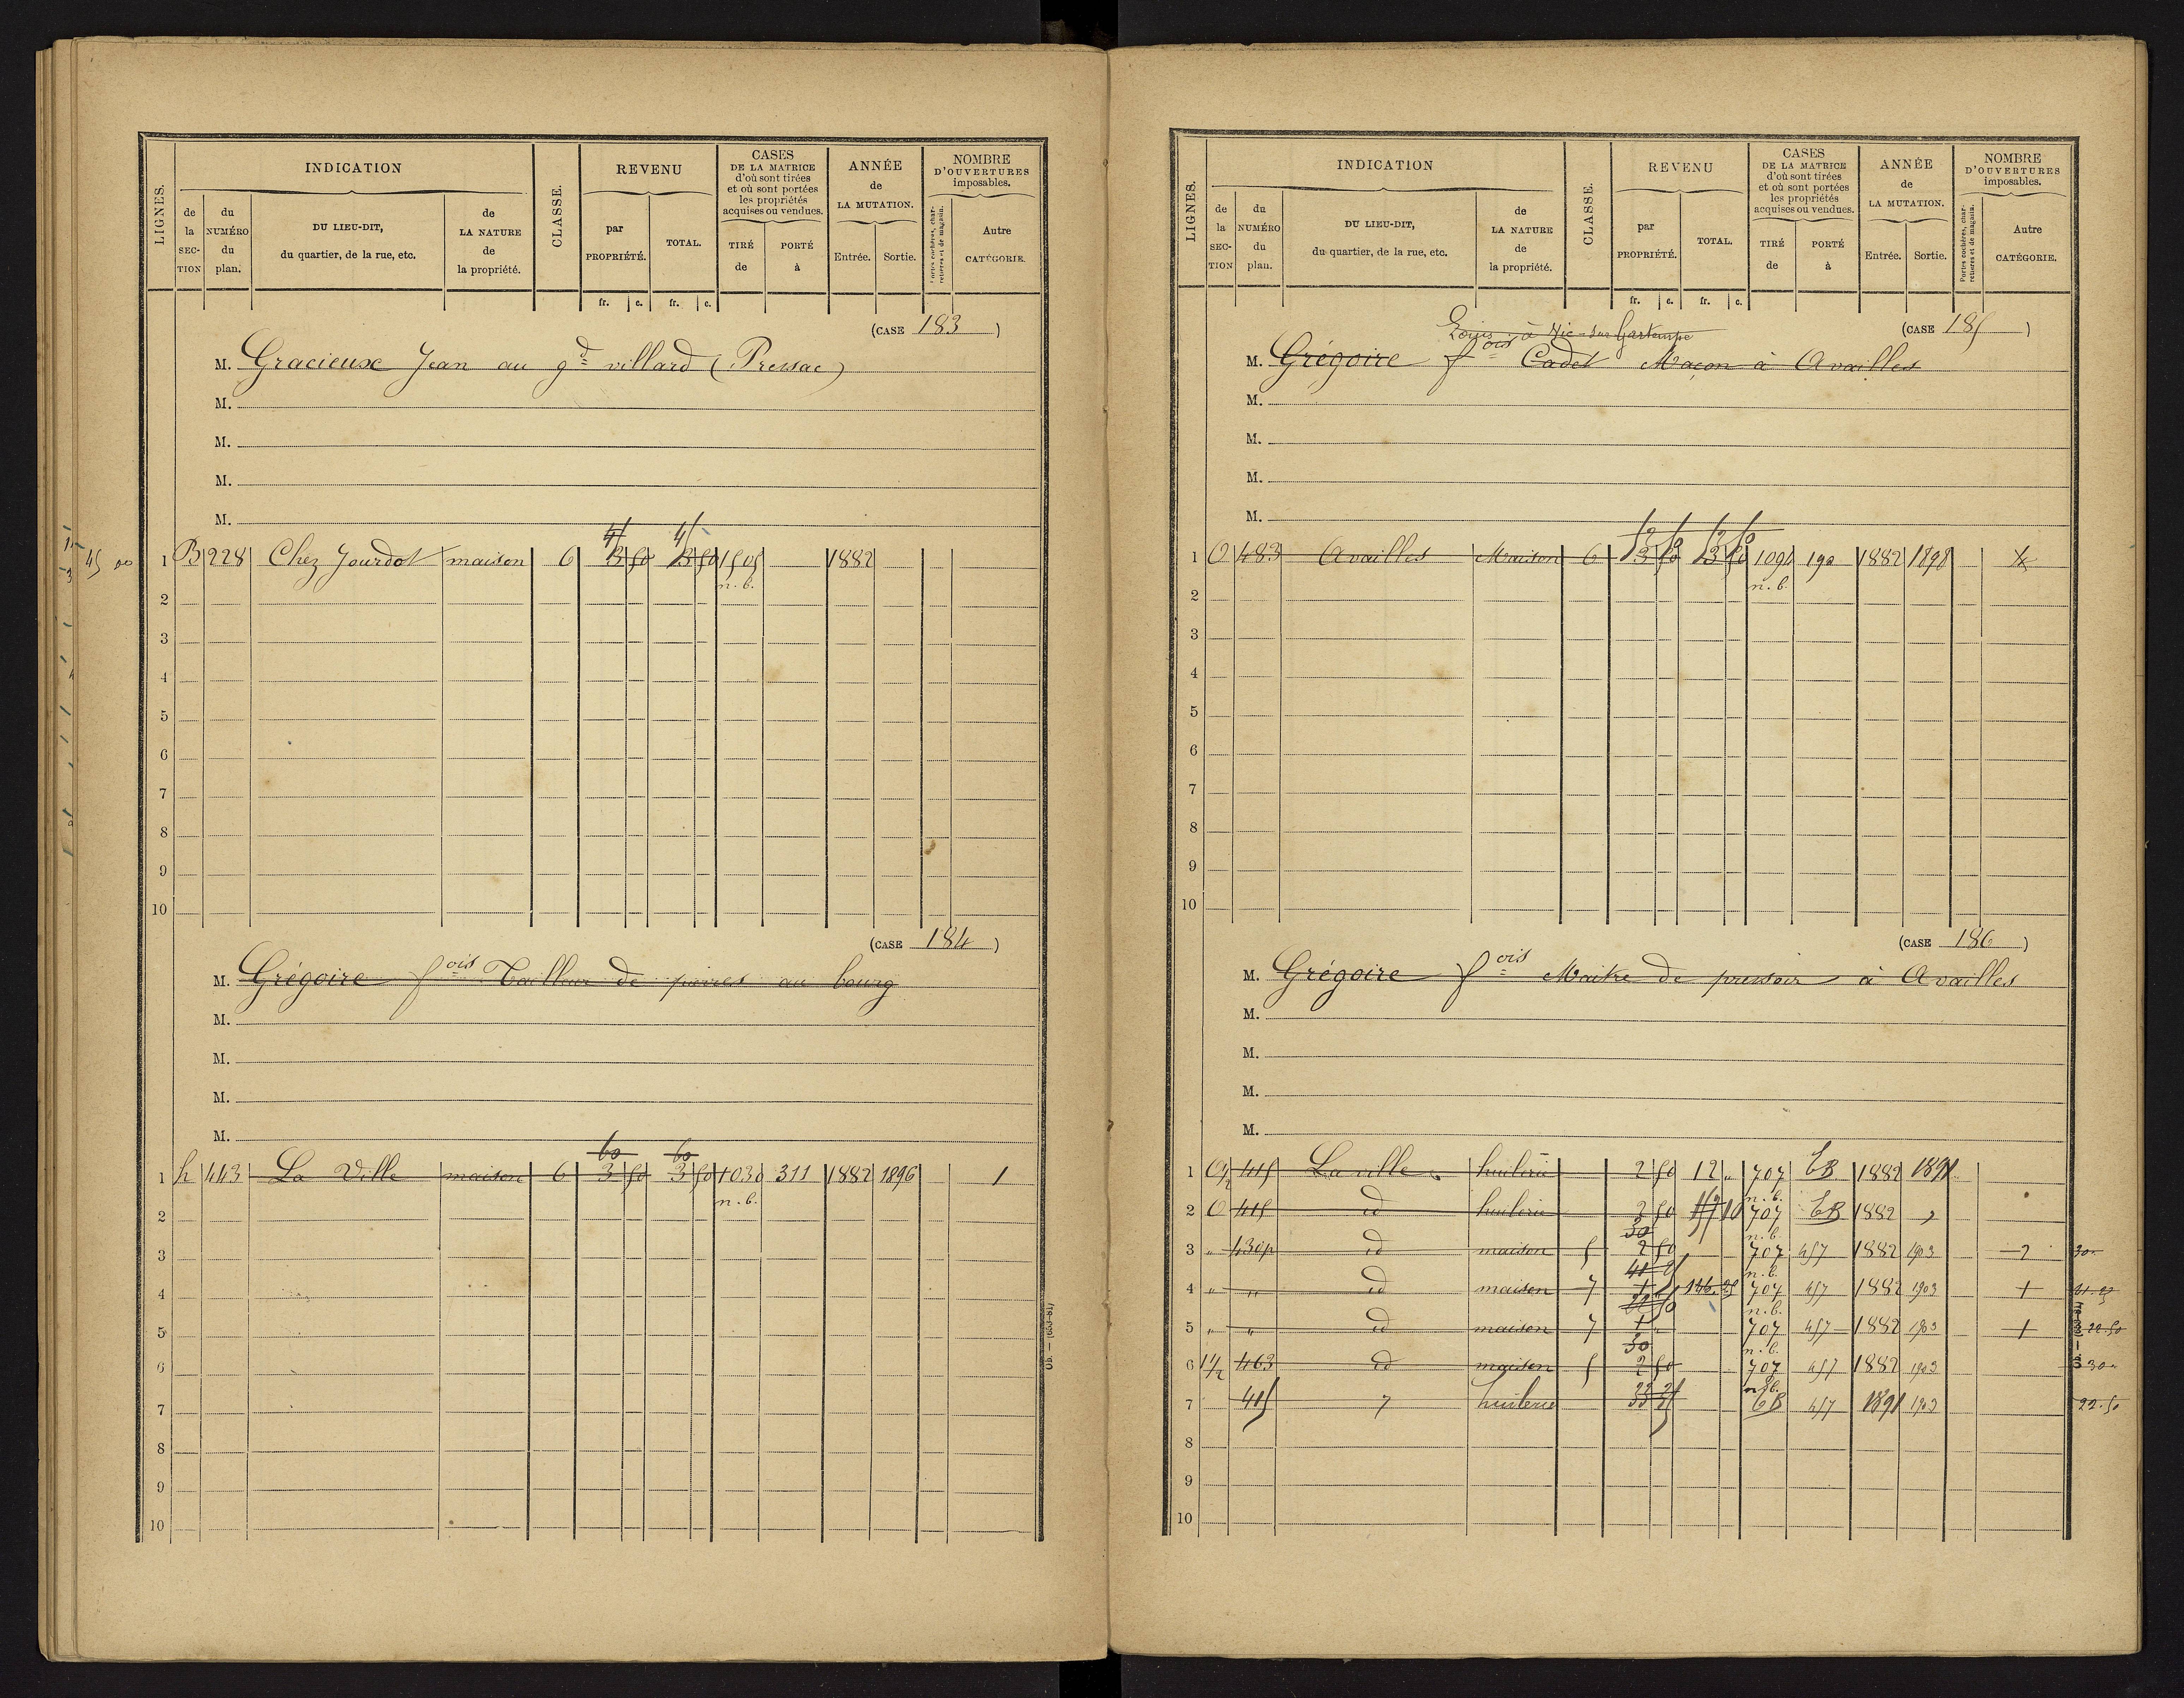 LIGNES.
INDICATION
de la SECTION
du NUMÉRO du plan.
DU LIEU-DIT, du quartier, de la rue, etc.
de LA NATURE de la propriété.
CLASSE.
REVENU
par PROPRIÉTÉ.
TOTAL.
fr. c. fr. c.
CASES DE LA MATRICE d'où sont tirées et où sont portées les propriétés acquises ou vendues.
TIRÉ de
PORTÉ à
ANNÉE de LA MUTATION.
Entrée. Sortie.
NOMBRE D'OUVERTURES imposables.
Portes cochères, charretières et de magasin.
Autre CATÉGORIE.
(CASE 183)
M. Gracieux Jean au gd villard (Pressac)
M.
M.
M.
M.
45 00
1 B 228 Chez Jourdot maison 6 3 50 3 50 1505 1882
n.b.
2
3
4
5
6
7
8
9
10
(CASE 184)
M. Grégoire fois Tailleur de pierres au bourg
M.
M.
M.
M.
60 60
1 h 443 La Ville maison 6 3 50 3 50 1030 311 1882 1896 1
n.b.
2
3
4
5
6
7
8
9
10
LIGNES.
INDICATION
de la SECTION
du NUMÉRO du plan.
DU LIEU-DIT, du quartier, de la rue, etc.
de LA NATURE de la propriété.
CLASSE.
REVENU
par PROPRIÉTÉ.
TOTAL.
fr. c. fr. c.
CASES DE LA MATRICE d'où sont tirées et où sont portées les propriétés acquises ou vendues.
TIRÉ de
PORTÉ à
ANNÉE de LA MUTATION.
Entrée. Sortie.
NOMBRE D'OUVERTURES imposables.
Portes cochères, charretières et de magasin.
Autre CATÉGORIE.
(CASE 185)
Louis à Vic-sur Gartempe
M. Grégoire fois Cadet Maçon à Availles
M.
M.
M.
M.
1 O 483 Availles Maison 6 3 50 3 50 190 1882 1898
n.b.
2
3
4
5
6
7
8
9
10
(CASE 186)
M. Grégoire fois Maitre de pressoir à Availles
M.
M.
M.
M.
1 415 La ville huilerie 2 50 12 " 707 CB 1882 1891
n.b.
2 O 415 id huilerie 2 50 707 CB 1882 "
30 n.b.
3 " 430p id maison 5 2 50 707 457 1882 1903 2 30
n.b.
4 " " id maison 7 1 146.25 707 457 1882 1903 1
n.b.
5 " " id maison 7 1 " 707 457 1882 1903 1 22.50
30 n.b.
6 463 id maison 5 2 50 707 457 1882 1903 30
n.b.
7 415 huilerie CB 457 1891 1903 22.50
8
9
10